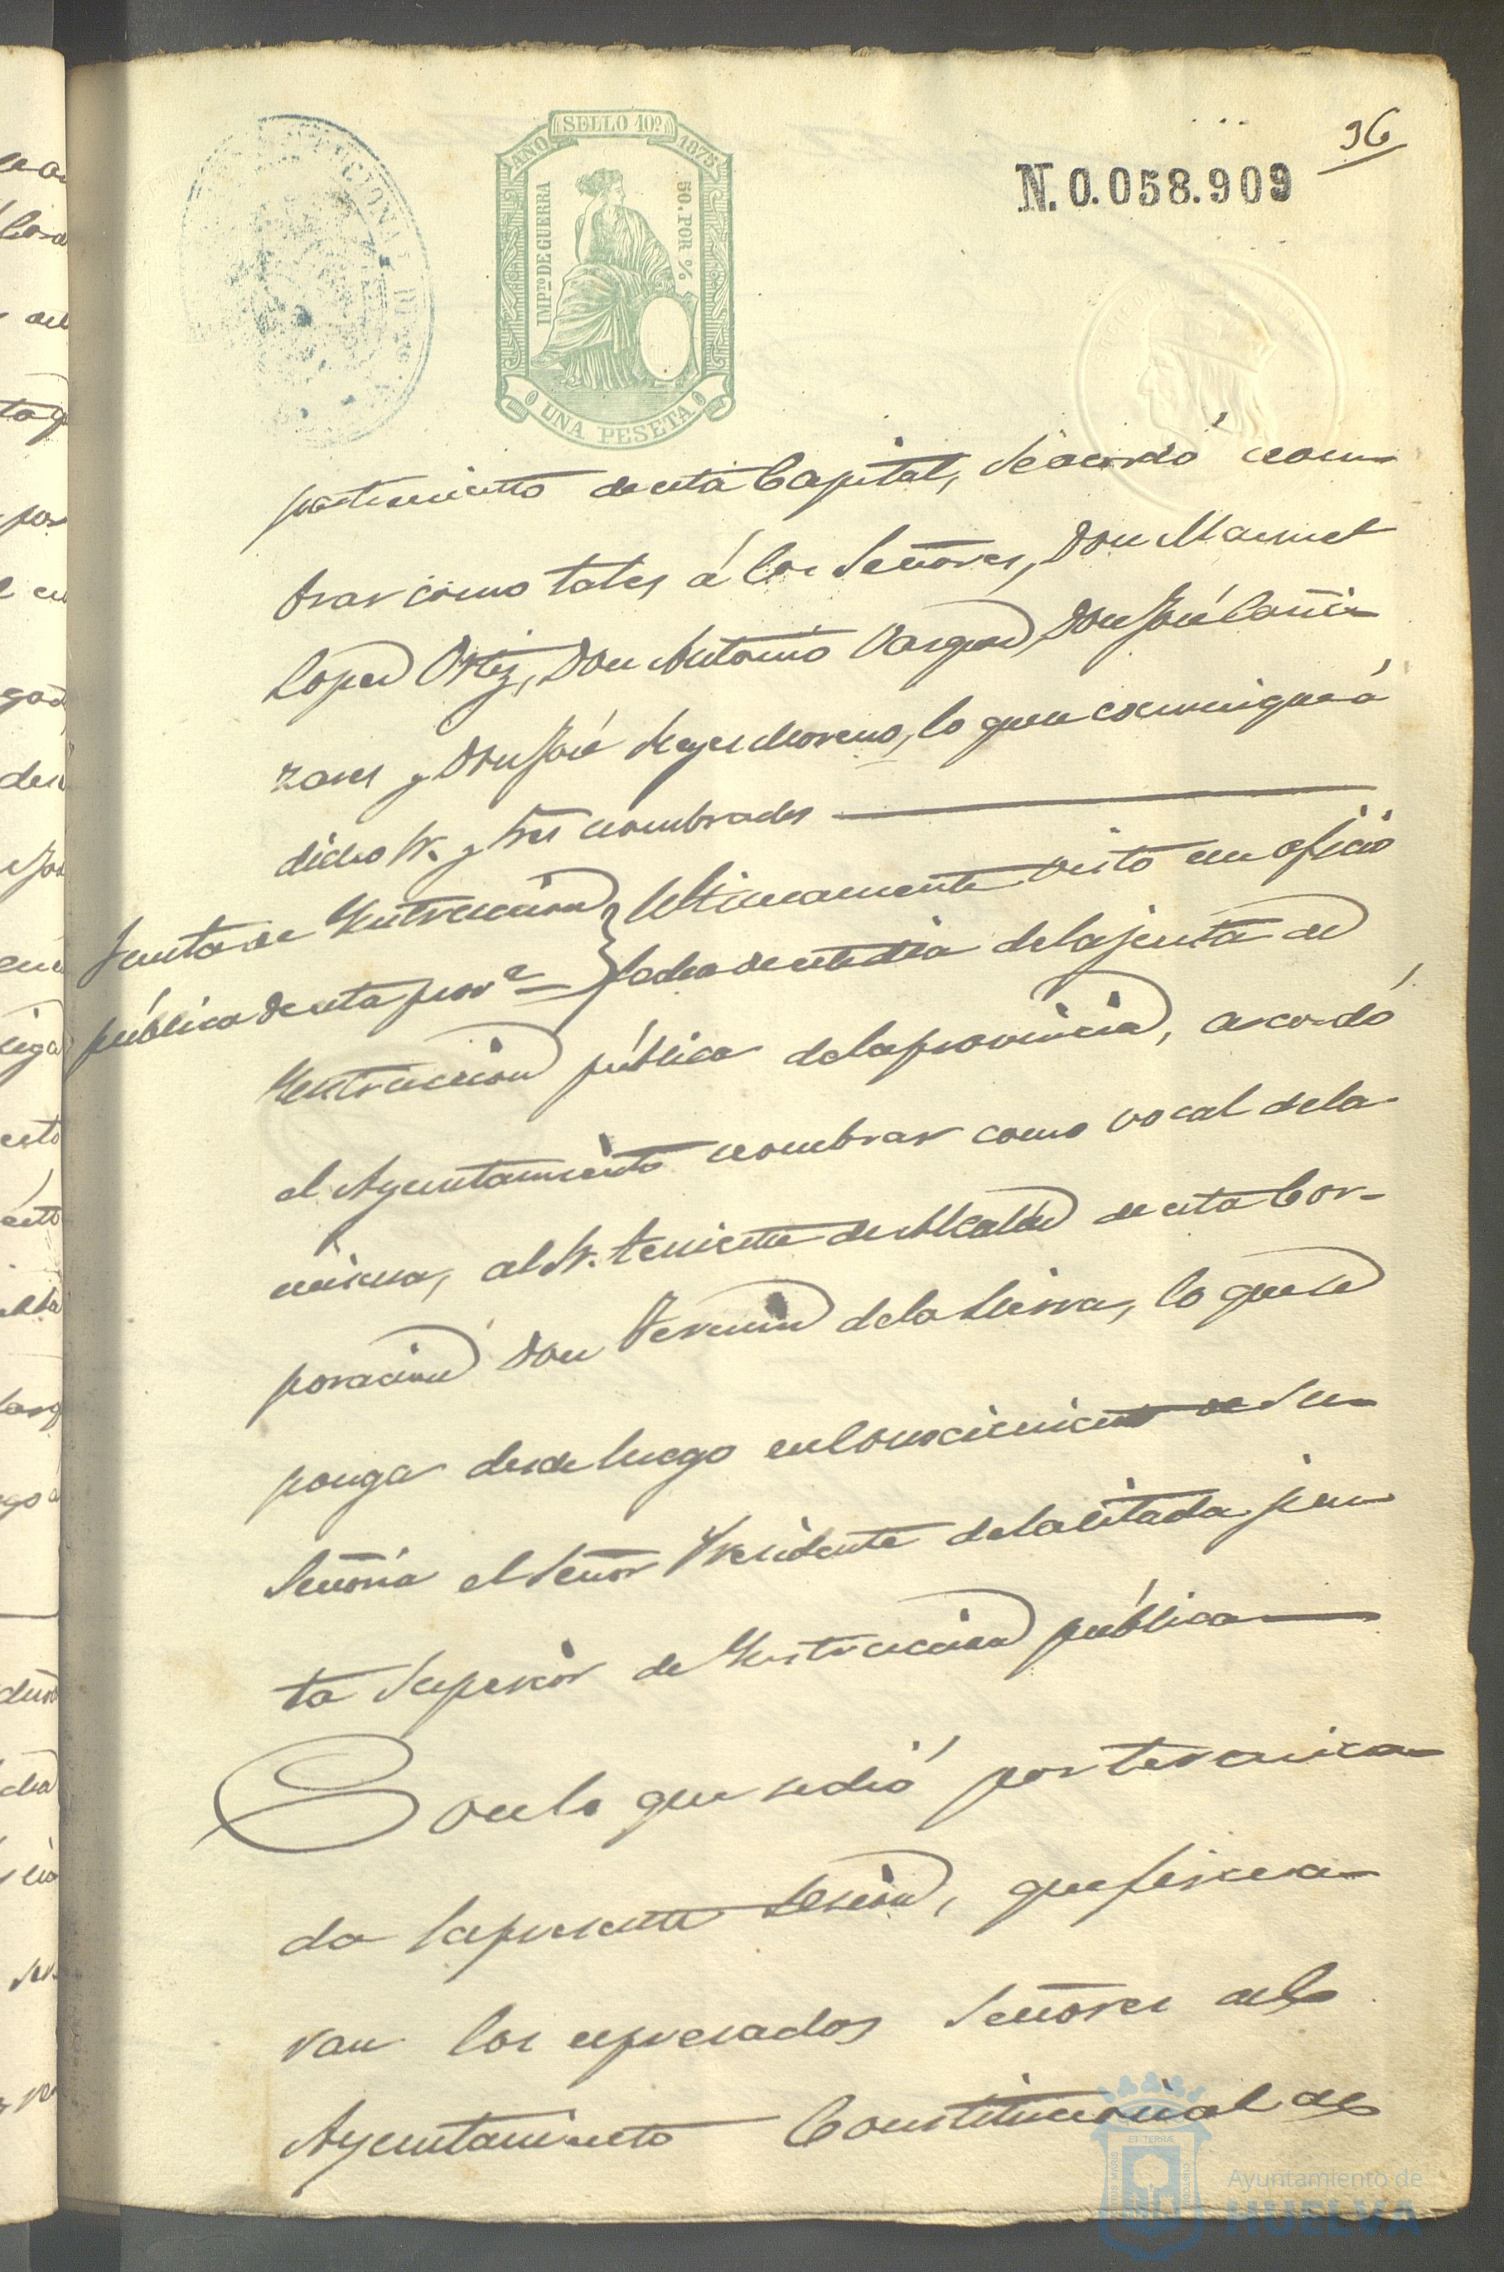 96
N. 0.058.909
SELLO 10º
AÑO 1875
IMPTO DE GUERRA
50. POR %
UNA PESETA
partimiento de esta Capital, se acordó nom-
brar como tales á los Señores, Don Manuel
Lopez Ortiz, Don Antonio Vargas, Don José Cañi-
zares y Don José Reyes Moreno, lo que se comunique á
dicho Sr. y tres nombrados
Junta de Instruccion
pública de esta provª
Ultimamente visto un oficio
fecha de este dia de la junta de
Instruccion pública de la provincia, acordó
el Ayuntamiento nombrar como vocal de la
misma, al Sr. teniente de Alcalde de esta Cor-
poracion Don Fermin de la Sierra, lo que se
ponga desde luego en Conocimiento de Su
Señoria el Señor Presidente de la citada jun
ta Superior de Instruccion pública
Con lo que se dió por termina-
da la presente Sesion, que firma-
ran los espresados Señores del
Ayuntamiento Constitucional de
Ayuntamiento de
HUELVA